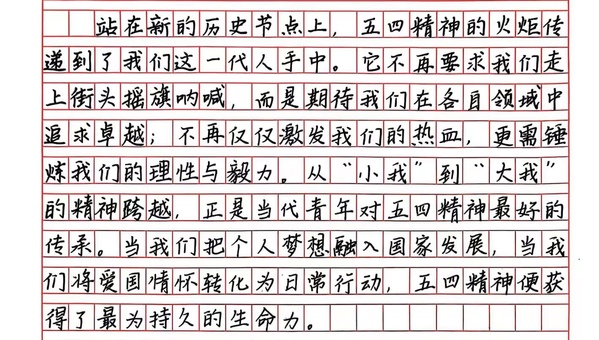 站在新的历史节点上，五四精神的火炬传
递到了我们这一代人手中。它不再要求我们走
上街头摇旗呐喊，而是期待我们在各自领域中
追求卓越；不再仅仅激发我们的热血，更需锤
炼我们的理性与毅力。从“小我”到“大我”
的精神跨越，正是当代青年对五四精神最好的
传承。当我们把个人梦想融入国家发展，当我
们将爱国情怀转化为日常行动，五四精神便获
得了最为持久的生命力。